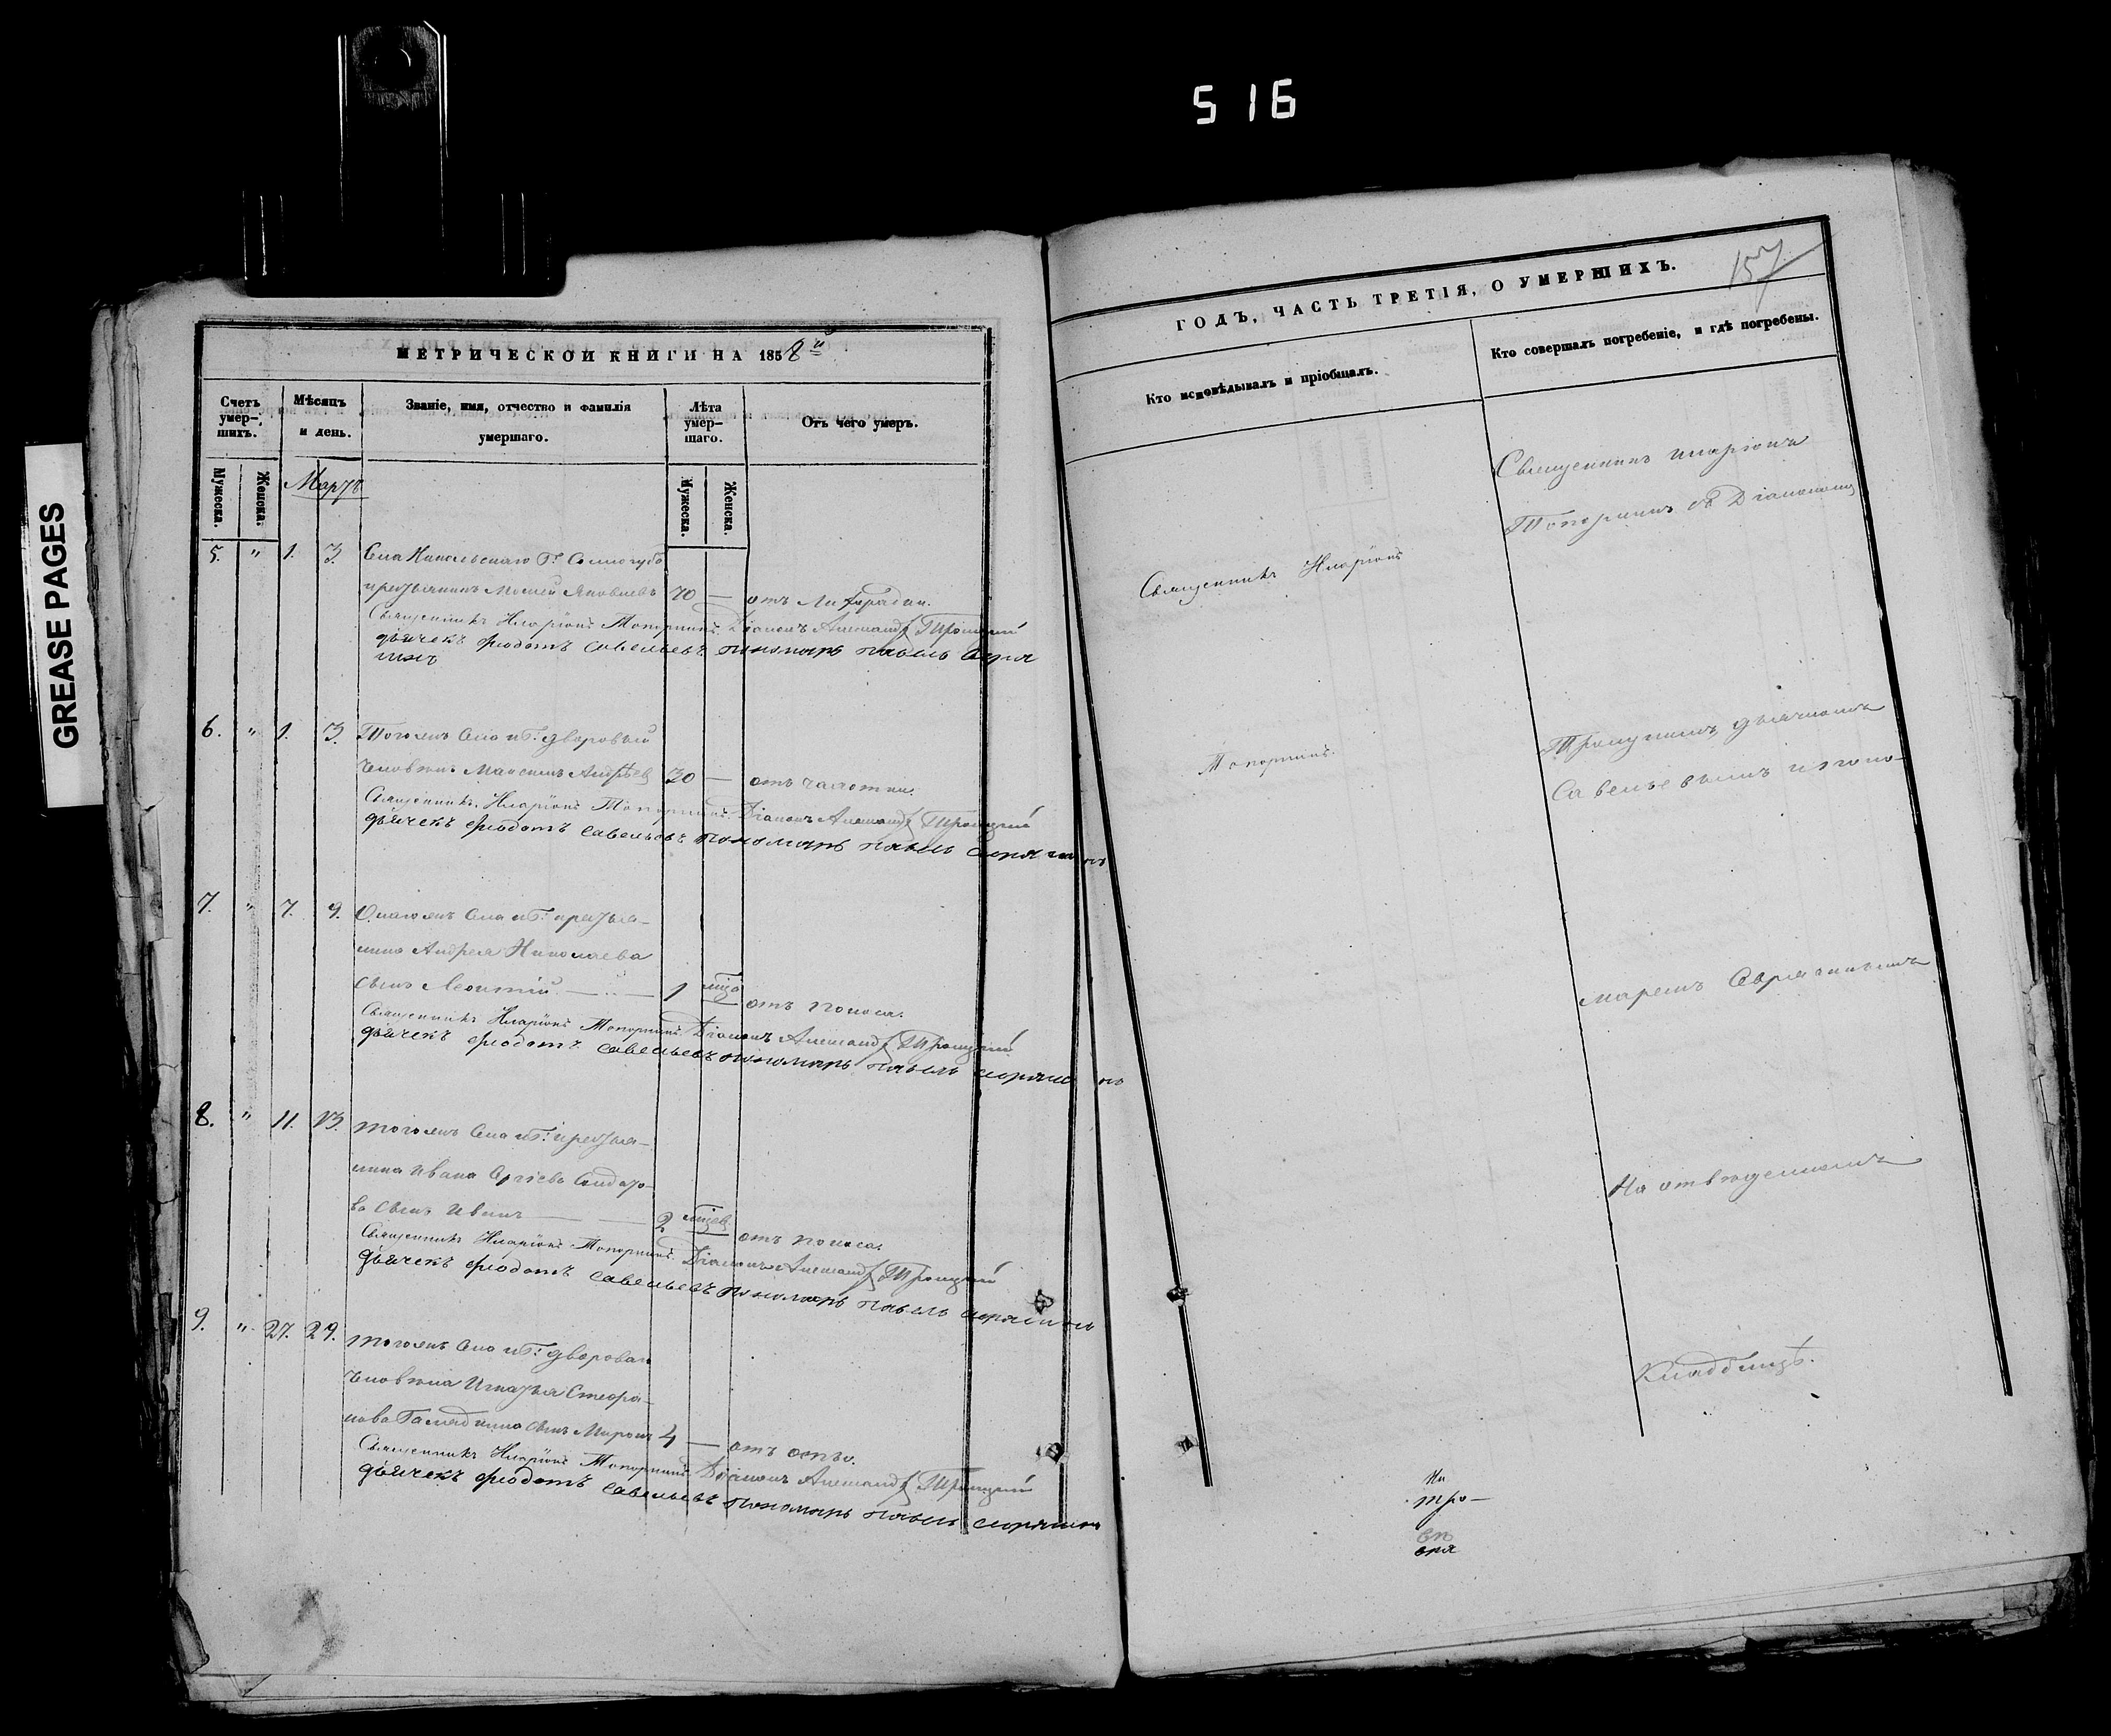 516
GREASE PAGES
МЕТРИЧЕСКОЙ КНИГИ НА 1858й
Счетъ умер-шихъ.
Мужеска.
Женска.
Мѣсяцъ и день.
Званіе, имя, отчество и фамилія умершаго.
Лѣта умер-шаго.
Мужеска.
Женска.
Отъ чего умеръ.
Мартъ
5. " 1. 3. Села Никольскаго Г.
крестьянинъ Яковлевъ 70 — отъ Лихорадки.
Священникъ Иларіонъ Топорнинъ. Діаконъ Александр Троицкій
дьячекъ Ѳлодотъ Савельевъ пономарь Павелъ
6. " 1. 3. Тогожъ Села и Г. дворовый
человѣкъ Максимъ Андреев 30 — отъ чахотки.
Священникъ Иларіонъ Топорнинъ. Діаконъ Александр Троицкій
дьячекъ Ѳлодотъ Савельевъ пономарь Павелъ
7. " 7. 9. Онагожъ Села и Г. крестья-
нина Андрея Николаева
сынъ Леонтій — " — 1 отъ поноса.
Священникъ Иларіонъ Топорнинъ. Діаконъ Александр Троицкій
дьячекъ Ѳлодотъ Савельевъ пономарь Павелъ
8. " 11. 13. Тогожъ Села и Г. крестья-
нина Ивана
ва сынъ Иванъ — — 2 отъ поноса.
Священникъ Иларіонъ Топорнинъ. Діаконъ Александр Троицкій
дьячекъ Ѳлодотъ Савельевъ пономарь Павелъ
9. " 27. 29. Тогожъ Села и Г. дворован
человѣка Игнатья Стефа-
нова сынъ Миронъ 4 — отъ оспы.
Священникъ Иларіонъ Топорнинъ. Діаконъ Александр Троицкій
дьячекъ Ѳлодотъ Савельевъ пономарь Павелъ
157
ГОДЪ, ЧАСТЬ ТРЕТІЯ, О УМЕРШИХЪ.
Кто исповѣдывалъ и пріобщалъ.
Кто совершалъ погребеніе, и гдѣ погребены.
Священникъ Иларіонъ
Топорнинъ.
Священникъ Иларіонъ
Топорнинъ съ Діакономъ
Троицкимъ, дьячкомъ
Савельевымъ и поно-
маремъ
На отведенномъ
Кладбищѣ.